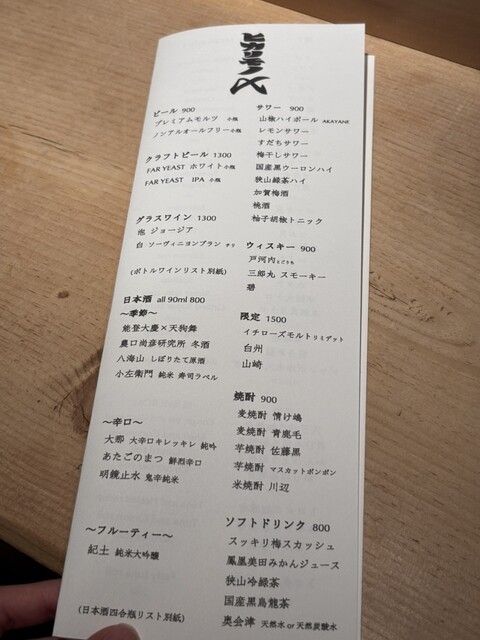 ヒカリモノ〆
ビール 900
プレミアムモルツ 小瓶
ノンアルオールフリー小瓶
クラフトビール 1300
FAR YEAST ホワイト小瓶
FAR YEAST IPA 小瓶
グラスワイン 1300
泡 ジョージア
白 ソーヴィニヨンブラン チリ
(ボトルワインリスト別紙)
日本酒 all 90ml 800
〜季節〜
能登大慶×天狗舞
農口尚彦研究所 冬酒
八海山 しぼりたて原酒
小左衛門 純米 寿司ラベル
〜辛口〜
大那 大辛口キレッキレ 純吟
あたごのまつ 鮮烈辛口
明鏡止水 鬼辛純米
〜フルーティー〜
紀土 純米大吟醸
(日本酒四合瓶リスト別紙)
サワー 900
山椒ハイボール AKAYANE
レモンサワー
すだちサワー
梅干しサワー
国産黒ウーロンハイ
狭山緑茶ハイ
加賀梅酒
桃酒
柚子胡椒トニック
ウィスキー 900
戸河内とごうち
三郎丸 スモーキー
碧
限定 1500
イチローズモルトリミテッド
白州
山崎
焼酎 900
麦焼酎 情け嶋
麦焼酎 青鹿毛
芋焼酎 佐藤黒
芋焼酎 マスカットボンボン
米焼酎 川辺
ソフトドリンク 800
スッキリ梅スカッシュ
鳳凰美田みかんジュース
狭山冷緑茶
国産黒烏龍茶
奥会津 天然水 or 天然炭酸水